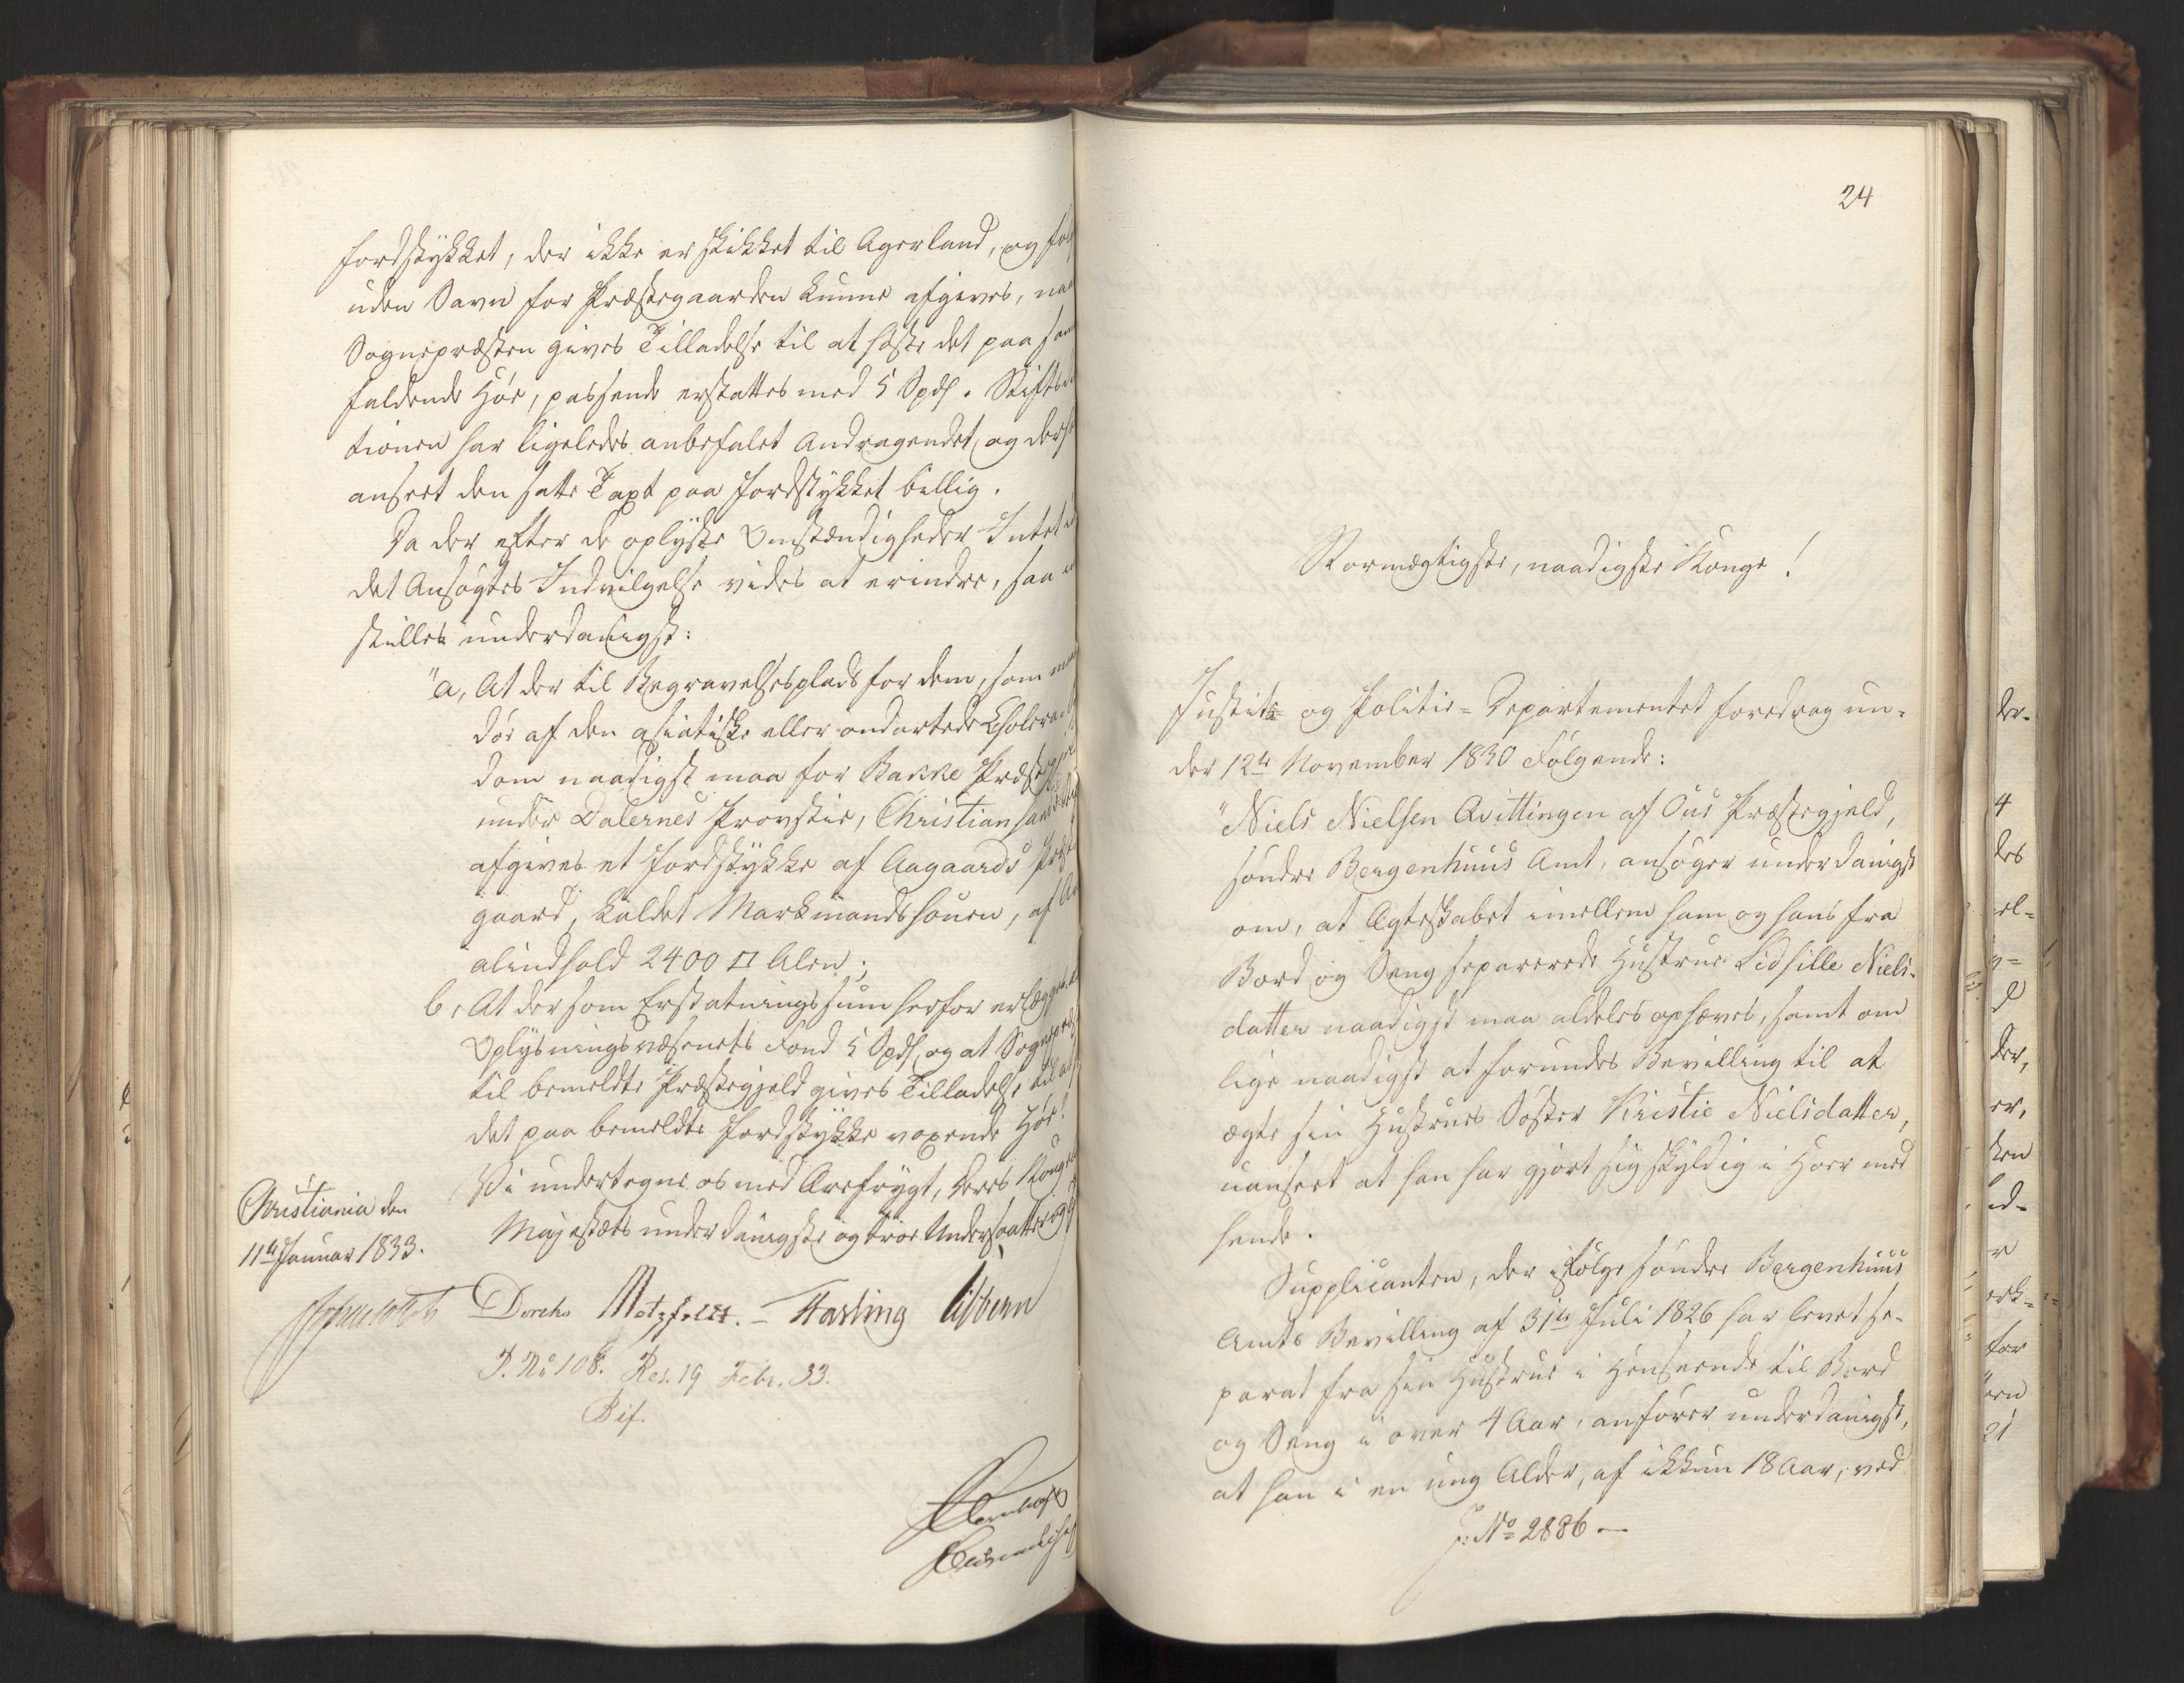 Jordstykket, der ikke er skikket til Agerland, og
uden Savn for Præstegaarden kunne afgives, naar
Sognepræsten gives Tilladelse til at høste det paa samme
faldende Höe, passende erstattes med 5 Spd. Stiftsdi
tionen har ligeledes anbefalet Andragendet, og
anseet den satte Taxt paa Jordstykket billig.
Da der efter de oplyste Omstændigheder Intet
det Ansögtes Indvilgelse vides at erindre, saa
stilles underdanigst:
"a, At der til Begravelsesplads for dem, som
döe af den asiatiske eller ondartede Cholera
dom naadigst maa for Bakke Præste
under Dalernes Provstie, Christiansands
afgives et Jordstykke af Aagaards Præste
gaard, kaldet Markmandshouen, af
alindhold 2400 □ Alen;
b, At der som Erstatningssum herfor erlægges
Oplysningsvæsenets Fond 5 Spd, og at Sognepræst
til bemeldte Præstegjeld gives Tilladelse til at
det paa bemeldte Jordstykke voxende Höe."
Vi undertegne os med Ærefrygt, Deres Konge
Majestæts underdanigste og troe Undersaatter
Christiania den
11te Januar 1833.
Diriks Motzfeldt. – Fasting Sibbern
P. No 108. Res. 19 Febr. 33.
Bif.
24
Stormægtigste, naadigste Konge!
Justits- og Politie-Departementet foredrog un-
der 12te November 1830 Følgende:
"Niels Nielsen Qvittingen af Ous Præstegjeld,
söndre Bergenhuus Amt, ansöger underdanigst
om, at Ægteskabet imellem ham og hans fra
Bord og Seng separerede Hustrue Lidsille Niels-
datter naadigst maa aldeles ophæves, samt om
lige naadigst at forundes Bevilling til at
ægte sin Hustrues Söster Kristie Nielsdatter,
uanseet at han har gjort sig skyldig i Hoer med
hende.
Supplicanten, der ifölge söndre Bergenhuus
Amts Bevilling af 31te Juli 1826 har levet se-
parat fra sin Hustrue i Henseende til Bord
og Seng i over 4 Aar, anförer underdanigst,
at han i en ung Alder, af ikkun 18 Aar, ved
J: No 2886 –